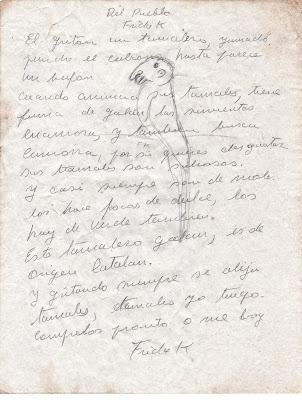 Del Pueblo
Frida K
El gritón un tamalero, gamado
pincho el cabrón, hasta parece
un bufón
Cuando anuncia sus tamales, tiene
fama de galán, las sirvientas
enamora, y tambien busca
camorra, por si quieres desgustar
sus tamales son sabrosos.
y casi siempre son de mole
los hace pocos de dulce, los
hay de verde tambien.
Este tamalero galan, es de
origen Catalan.
Y gritando siempre se aleja
tamales, tamales yo tengo.
compralos pronto o me boy
Frida K